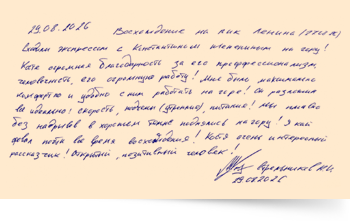 29.08.2026 Восхождение на пик Ленина (7134 м)
Ходили экспрессом с Константином Шепелиным на гору!
Косте огромная благодарность за его профессионализм
человечность, его огромную работу! Мне было максимально
комфортно и удобно с ним работать на горе! Он разложил
все идеально: скорость, подъемы (утренние), питание! Мы плавно
без надрывов в хорошем темпе поднялись на гору! Я кайфовал
во время восхождения! Костя очень интересный
рассказчик! Открытый, позитивный человек!
29.08.2026